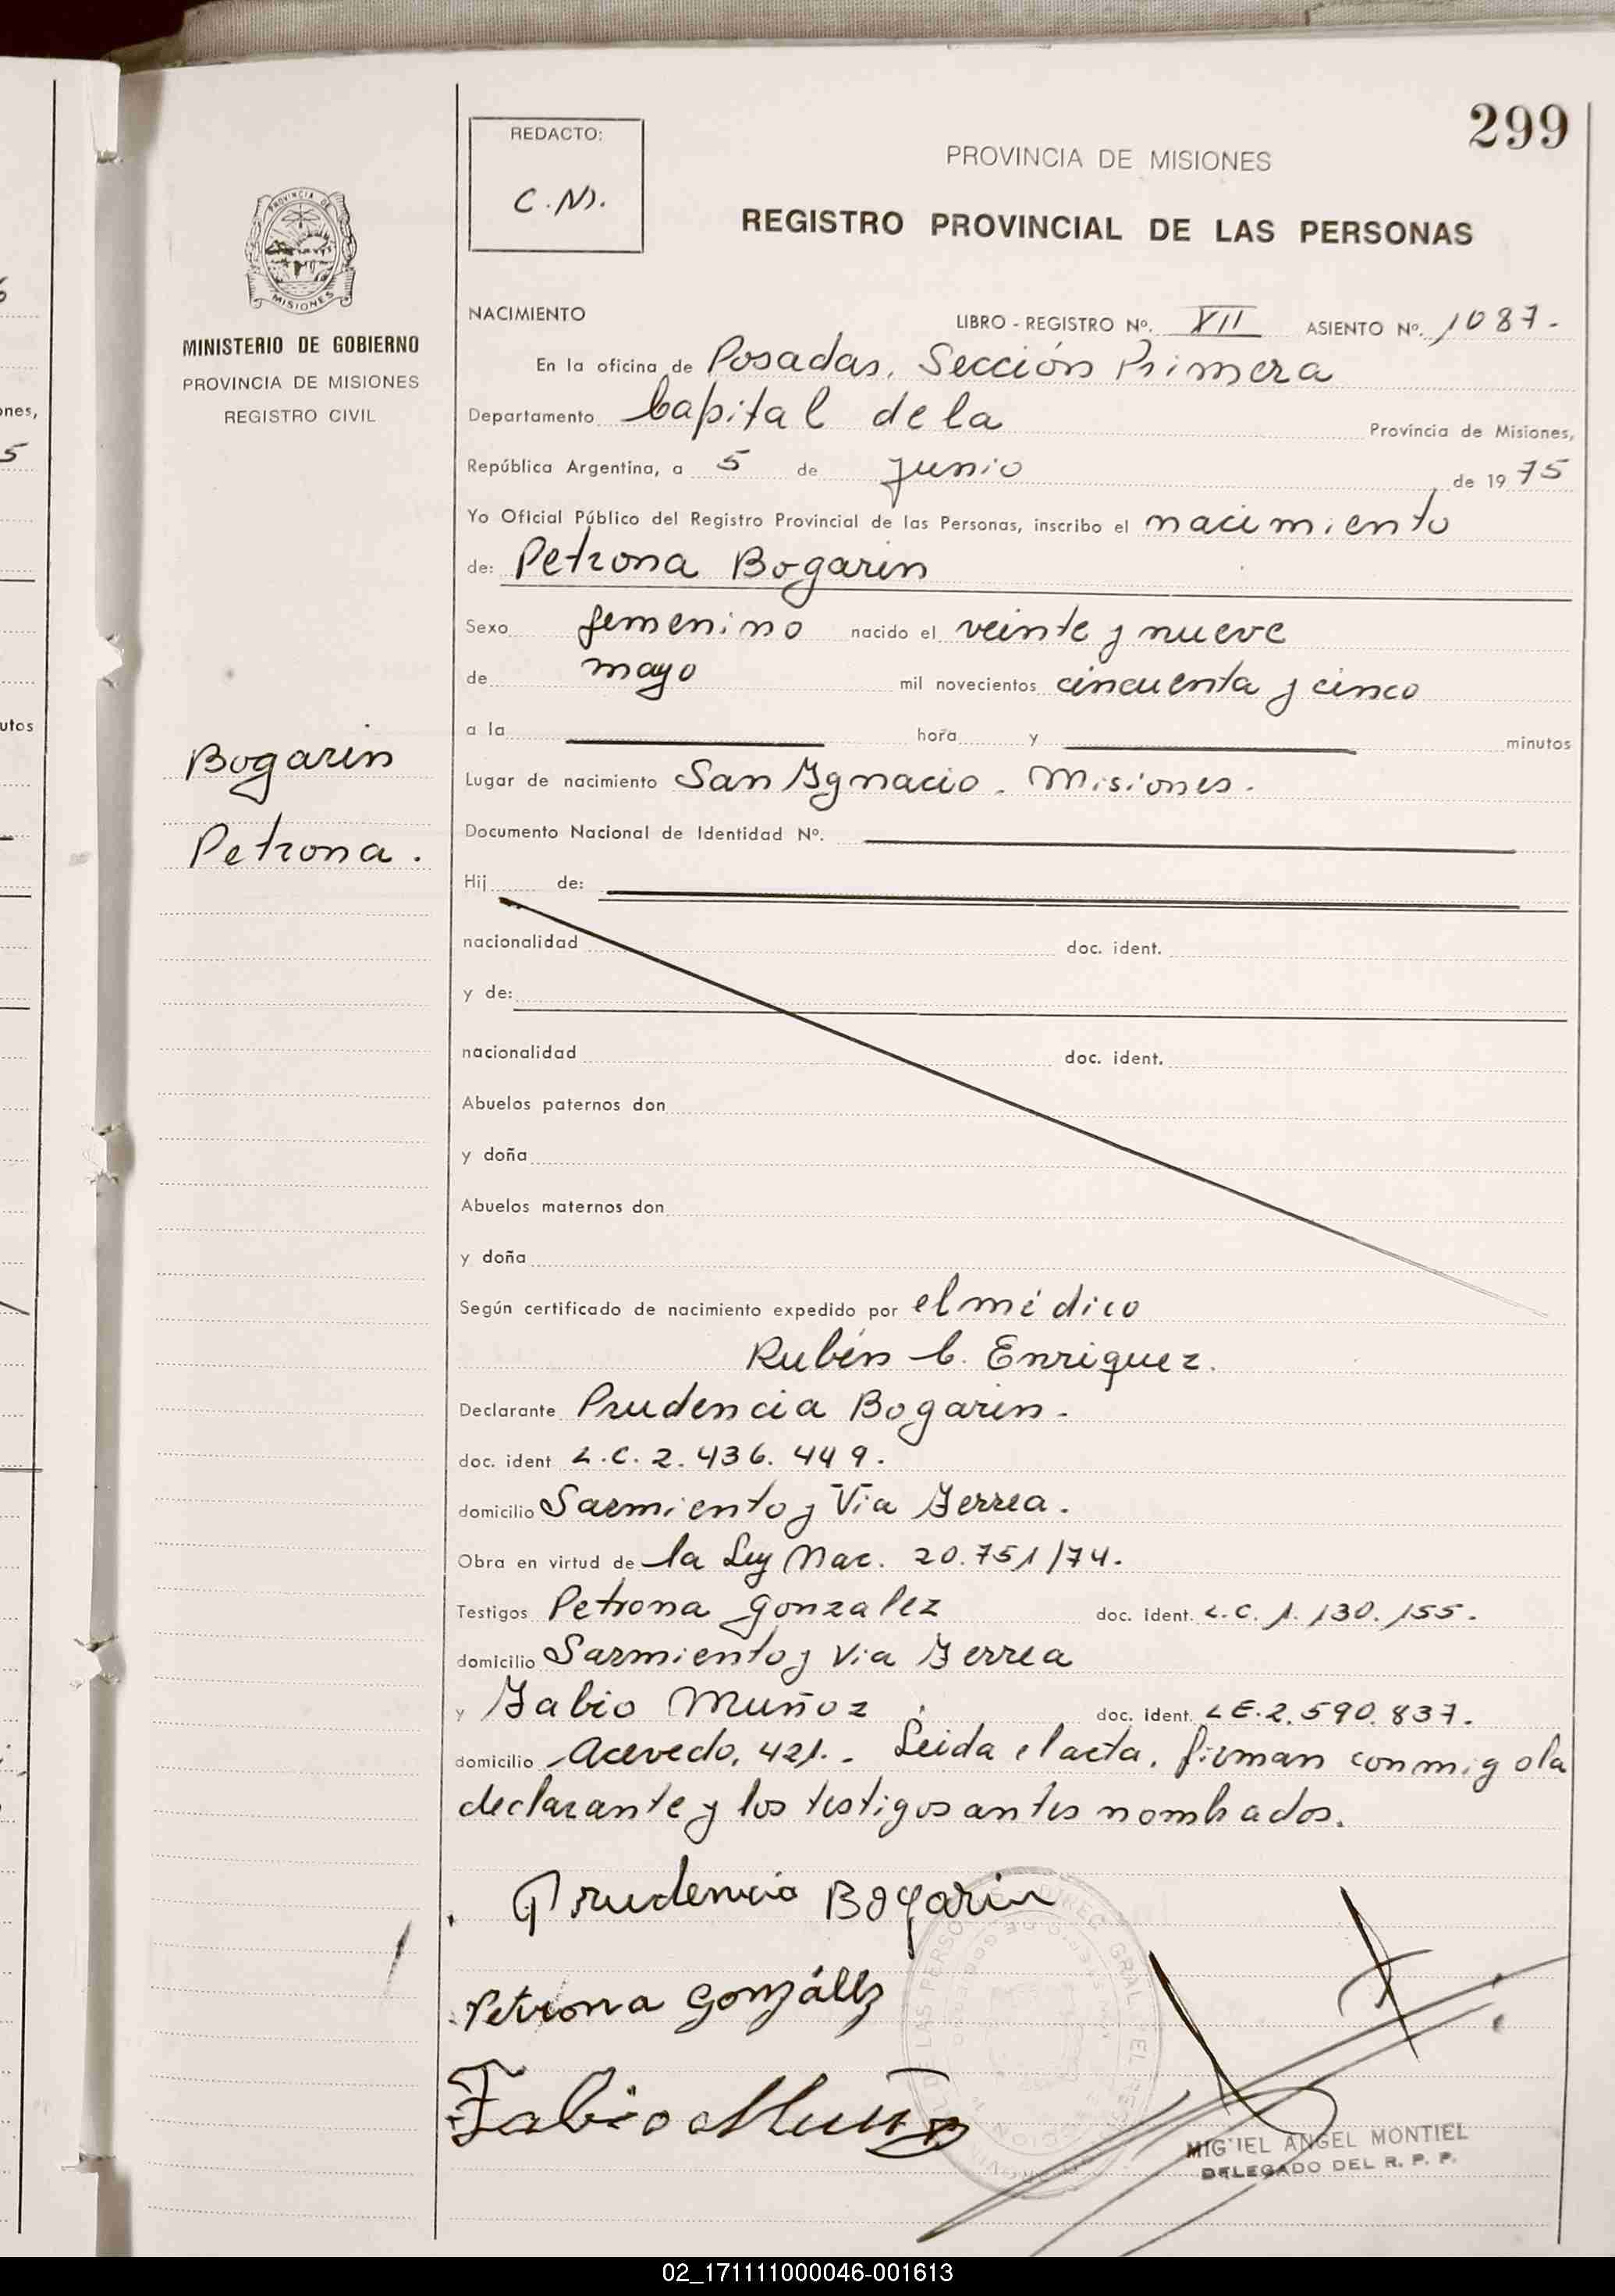 299
REDACTO:
C.N.
PROVINCIA DE MISIONES
REGISTRO PROVINCIAL DE LAS PERSONAS
PROVINCIA DE
MISIONES
MINISTERIO DE GOBIERNO
PROVINCIA DE MISIONES
REGISTRO CIVIL
NACIMIENTO LIBRO - REGISTRO Nº. XII ASIENTO Nº. 1087.
En la oficina de Posadas. Sección Primera
Departamento Capital de la Provincia de Misiones,
República Argentina, a 5 de Junio de 1975
Yo Oficial Público del Registro Provincial de las Personas, inscribo el nacimiento
de: Petrona Bogarin
Sexo femenino nacido el veinte y nueve
de mayo mil novecientos cincuenta y cinco
a la hora y minutos
Bogarin
Petrona.
Lugar de nacimiento San Ignacio. Misiones.
Documento Nacional de Identidad Nº.
Hij de:
nacionalidad doc. ident.
y de:
nacionalidad doc. ident.
Abuelos paternos don
y doña
Abuelos maternos don
y doña
Según certificado de nacimiento expedido por el médico
Rubén C. Enriquez.
Declarante Prudencia Bogarin.
doc. ident L.C. 2.436.449.
domicilio Sarmiento y Vía Ferrea.
Obra en virtud de la Ley Nac. 20.751/74.
Testigos Petrona Gonzalez doc. ident. L.C. 1.130.155.
domicilio Sarmiento y Via Ferrea
y Fabio Muñoz doc. ident. L.E. 2.590.837.
domicilio Acevedo, 421. Leida el acta, firman conmigo la
declarante y los testigos antes nombrados.
Prudencia Bogarin
Petrona González
Fabio Muñoz
MIGUEL ANGEL MONTIEL
DELEGADO DEL R. P. P.
02_171111000046-001613